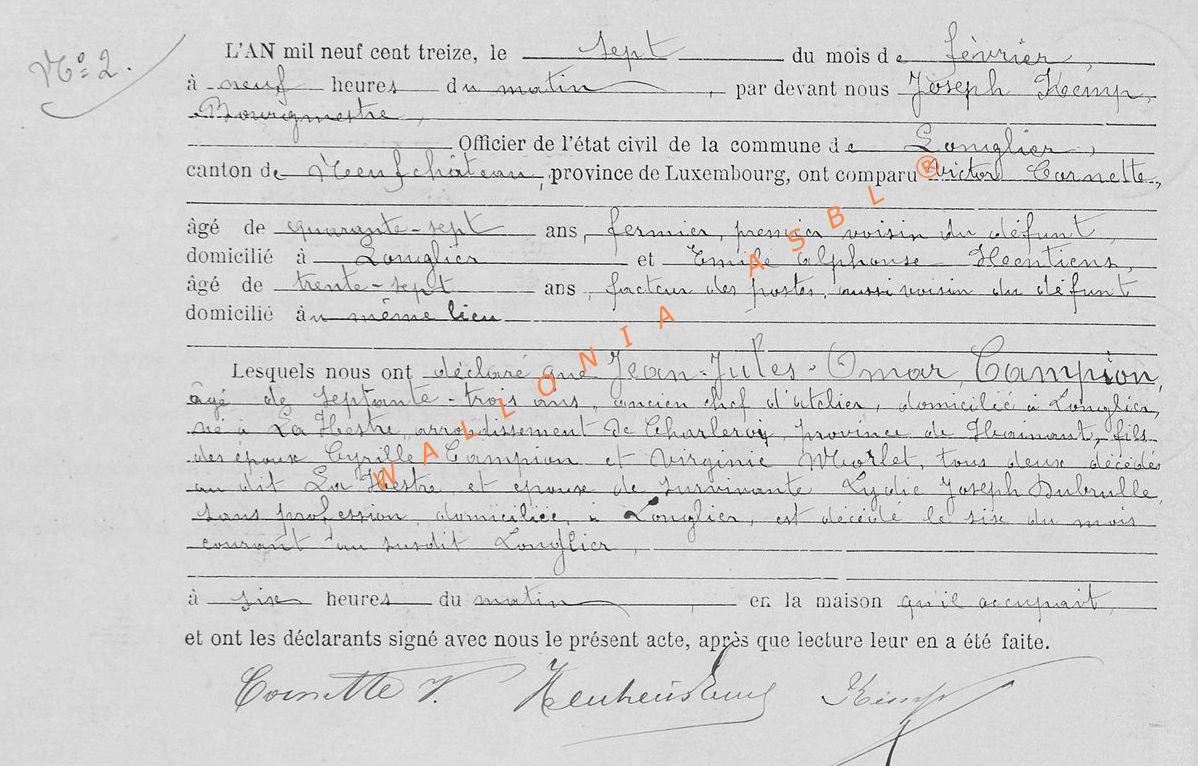 N° 2.
L'AN mil neuf cent treize, le sept du mois de février,
à neuf heures du matin, par devant nous Joseph Kemp,
Bourgmestre,
Officier de l'état civil de la commune de Longlier,
canton de Neufchâteau, province de Luxembourg, ont comparu Victor Cornette,
âgé de quarante-sept ans, fermier, premier voisin du défunt,
domicilié à Longlier et Emile Alphonse
âgé de trente-sept ans, facteur des postes, aussi voisin du défunt
domicilié au même lieu
Lesquels nous ont déclaré que Jean-Jules-Omar Campion,
âgé de septante-trois ans, ancien chef d'atelier, domicilié à Longlier,
né à La Hestre, arrondissement de Charleroy, province de Hainaut, fils
des époux Cyrille Campion et Virginie Morlet, tous deux décédés
au dit La Hestre, et époux de survivante Lydie Joseph Dubrulle,
sans profession, domiciliée à Longlier, est décédé le six du mois
courant au susdit Longlier,
à six heures du matin, en la maison qu'il occupait,
et ont les déclarants signé avec nous le présent acte, après que lecture leur en a été faite.
Cornette V. Kemp
WALLONIA ASBL ®